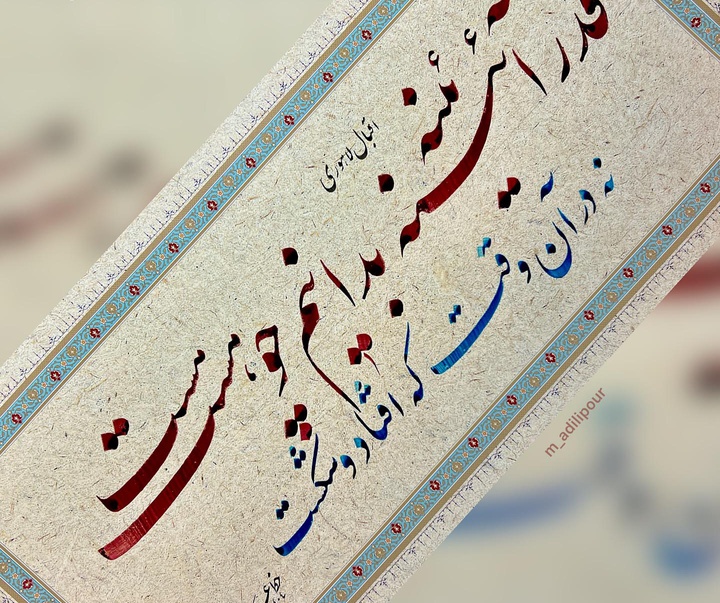 قدر آئینه بدانیم چو هست
نه در آن وقت که افتاد و شکست
اقبال لاهوری
m_adilipour